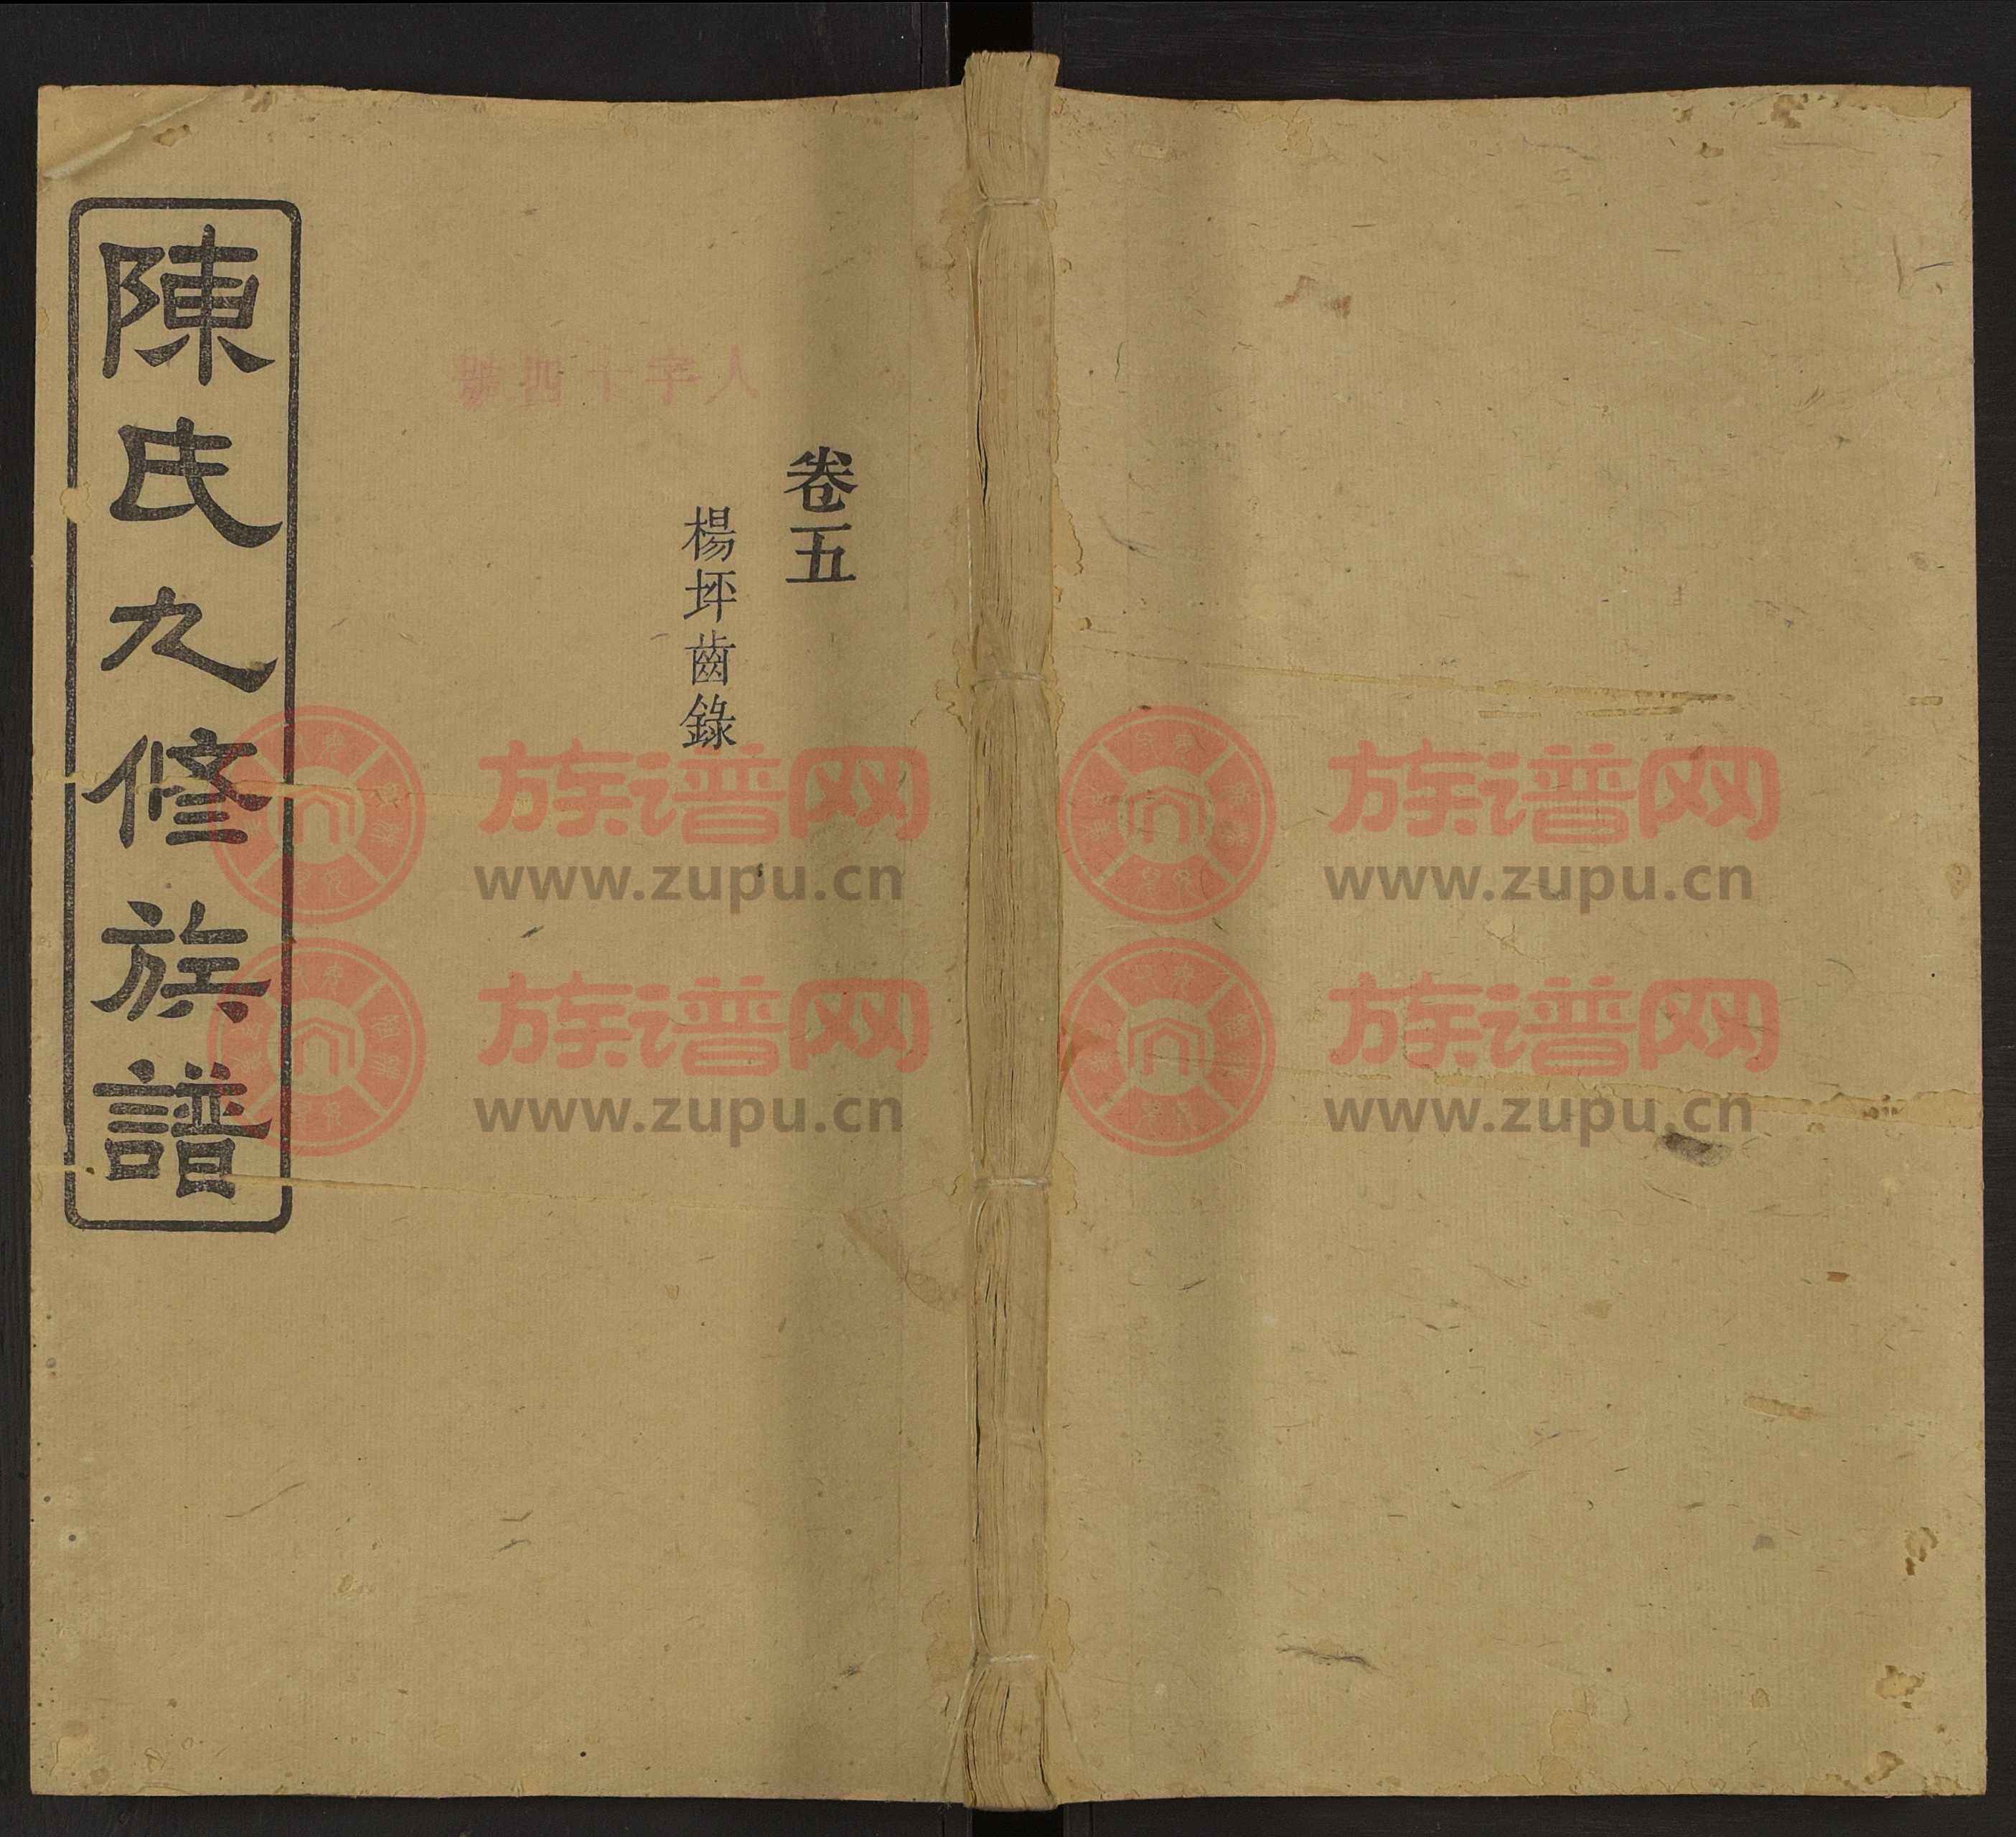 卷五
楊坪齒錄
人字十四號
陳氏九修族譜
族谱网
www.zupu.cn
族谱网
www.zupu.cn
族谱网
www.zupu.cn
族谱网
www.zupu.cn